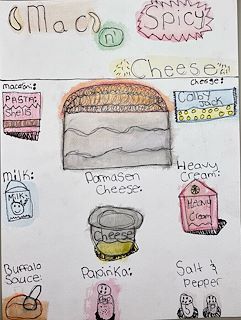 Mac Spicy
n'
Cheese
macaroni: cheese:
PASTA Shells
Colby Jack
milk: Parmasen Cheese: Heavy Cream:
Milk
Cheese
Heavy Cream
Buffalo Sauce: Paprika: Salt & Pepper